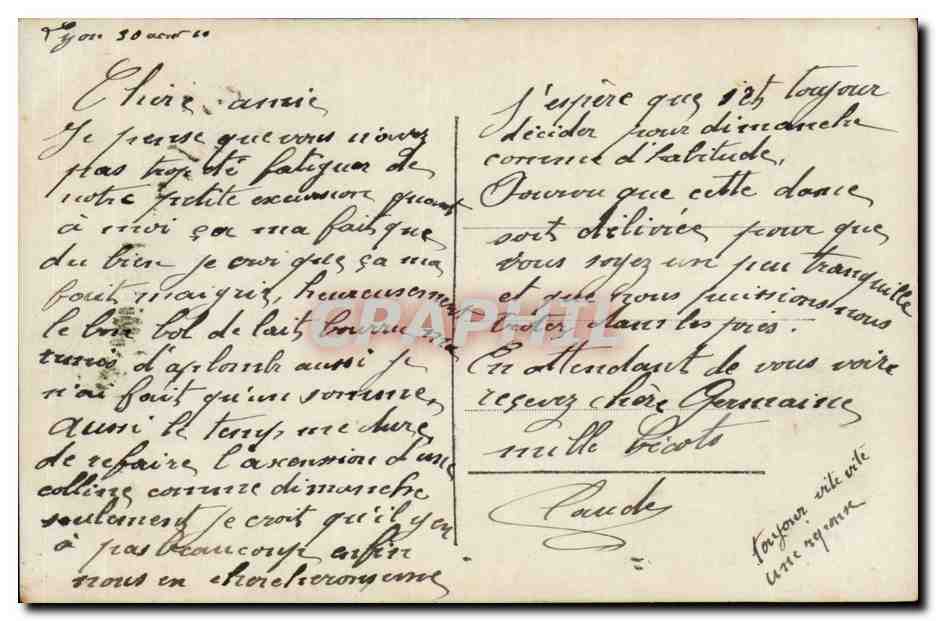 Lyon 30
Chère amie
Je pense que vous n'avez
pas trop été fatiguer de
notre petite excursion quant
à moi ça ma fait que
du bien je croi que ça ma
fait maigrir, heureusement
le bon bol de lait bourru ma
remis d'aplomb aussi je
n'ai fait qu'un somme,
Aussi le temp me dure
de refaire l'axension d'une
colline comme dimanche
seulement je croit qu'il y en
à pas beaucoup enfin
nous en chercherons une
J'espère que s'est toujour
décider pour dimanche
comme d'habitude,
Pourvu que cette dame
soit délivrée pour que
vous soyez un peu tranquille
et que nous puissions nous
dans les près.
En attendant de vous voire
reçevez chère Germaine
mille bécots
Claude
toujour vite vite
une reponse
CPAPHIL